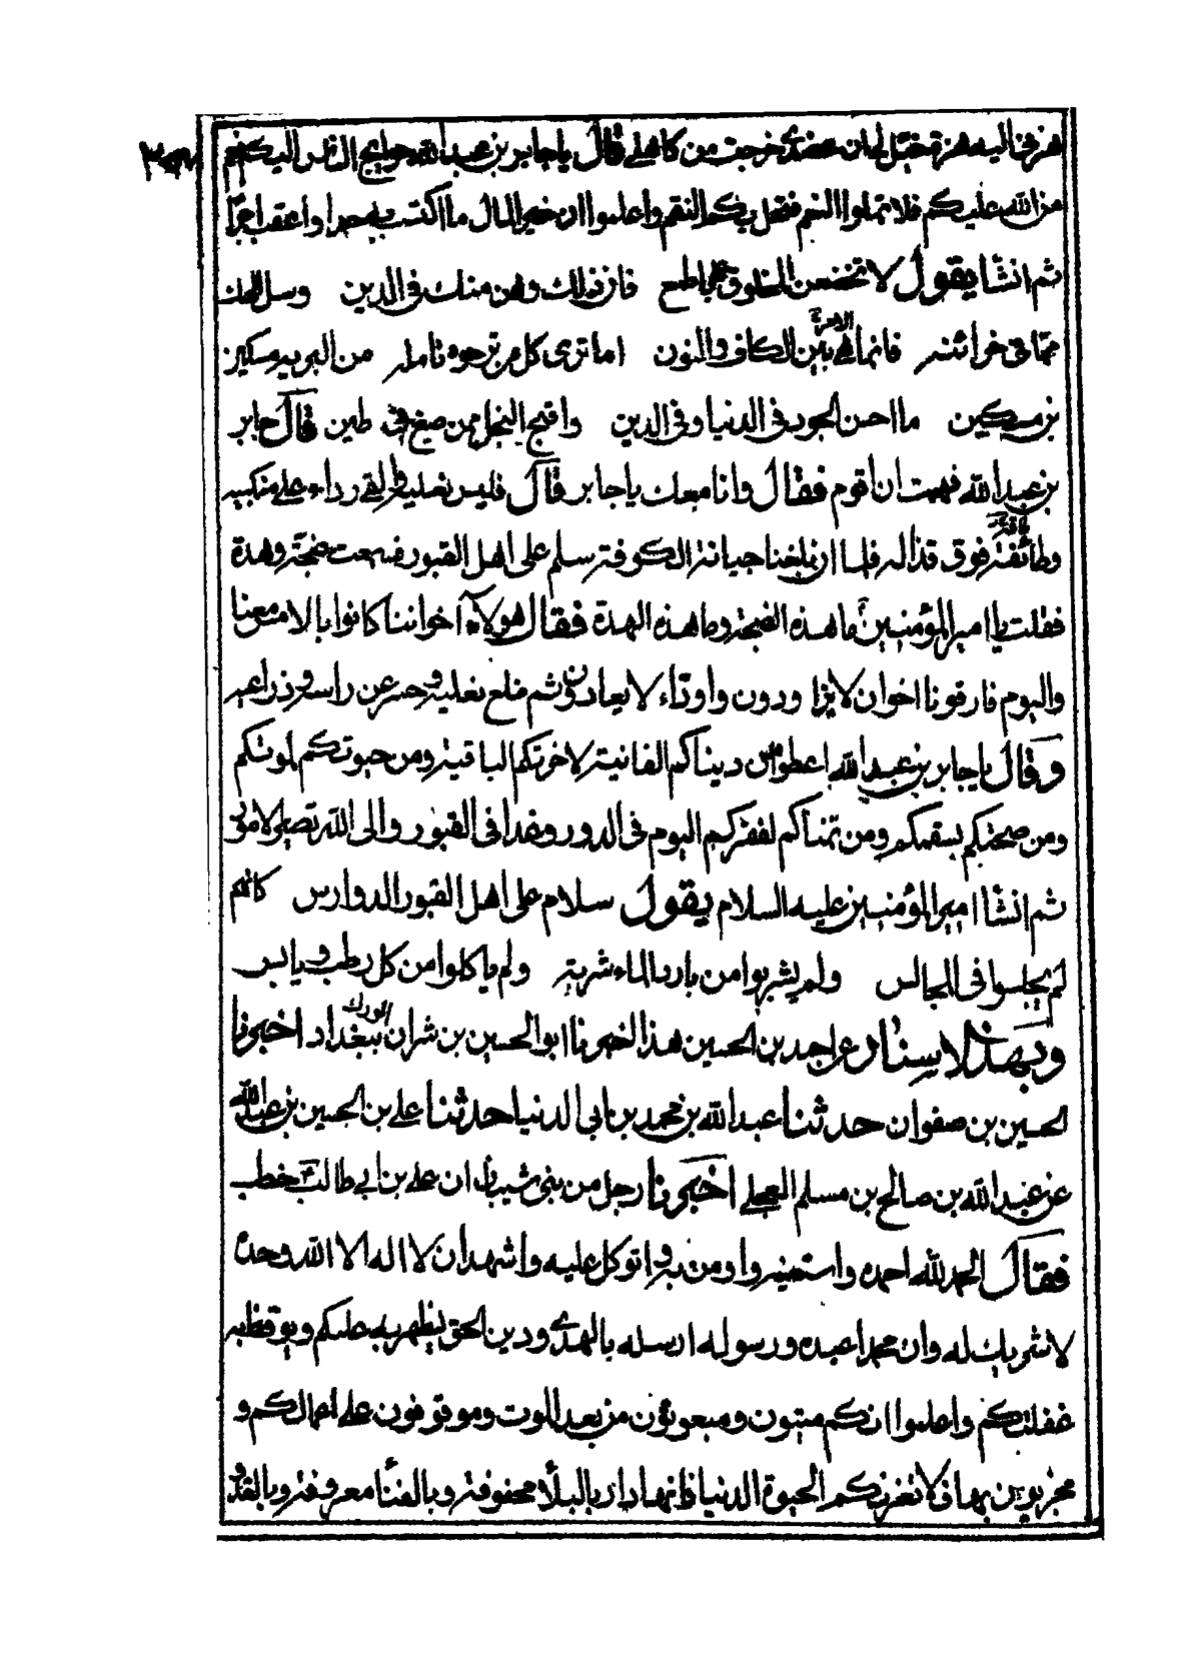 هزني اليه هزة خيل لي ان عضدي خرجت من كاهلي قال يا جابر بن عبد الله حوايج الناس اليكم نعم
من الله عليكم فلا تملوا النعم فتحل بكم النقم واعلموا ان خير المال ما اكتسب به حمدا واعقب اجرا
ثم انشا يقول لا تخضعن لمخلوق على طمع فان ذلك وهن منك في الدين وسل الهك
مما في خزائنه فانما هي بين الكاف والنون اما ترى كل من ترجو وتامله من البرية مسكين
بن مسكين ما احسن الجود في الدنيا وفي الدين واقبح البخل ممن صيغ في طين قال جابر
بن عبد الله فهممت ان اقوم فقال وانا معك يا جابر قال فلبس نعليه والقى رداءه على منكبيه
وطائفته فوق قذاله فلما ان بلغنا جبانة الكوفة سلم على اهل القبور فسمعت ضجة وهدة
فقلت يا امير المؤمنين ما هذه الضجة وما هذه الهدة فقال هولاء اخواننا كانوا بالامس معنا
واليوم فارقونا اخوان لا يتزاورون واوداء لا يعادون ثم خلع نعليه وحسر عن راسه وذراعيه
وقال يا جابر بن عبد الله اعطوا من دنياكم الفانية لاخرتكم الباقية ومن حيوتكم لموتكم
ومن صحتكم لسقمكم ومن غناكم لفقركم اليوم في الدور وغدا في القبور والى الله تصير الامور
ثم انشا امير المؤمنين عليه السلام يقول سلام على اهل القبور الدوارس كانهم
لم يجلسوا في المجالس ولم يشربوا من بارد الماء شربة ولم ياكلوا من كل رطب ويابس
وبهذا الاسناد عن احمد بن الحسين هذا اخبرنا ابو الحسين بن بشران ببغداد اخبرنا
الحسين بن صفوان حدثنا عبد الله بن محمد بن ابي الدنيا حدثنا علي بن الحسين بن عبد الله
عن عبد الله بن صالح بن مسلم العجلي اخبرنا رجل من بني شيبان ان علي بن ابي طالب خطب
فقال الحمد لله احمده واستعينه واومن به واتوكل عليه واشهد ان لا اله الا الله وحده
لا شريك له وان محمدا عبده ورسوله ارسله بالهدى ودين الحق ليظهر به عليكم ويوقظ به
غفلتكم واعلموا انكم ميتون ومبعوثون من بعد الموت وموقوفون على اعمالكم و
مجزيون بها فلا تغرنكم الحيوة الدنيا فانها دار بالبلاء محفوفة وبالفناء معروفة وبالغدر